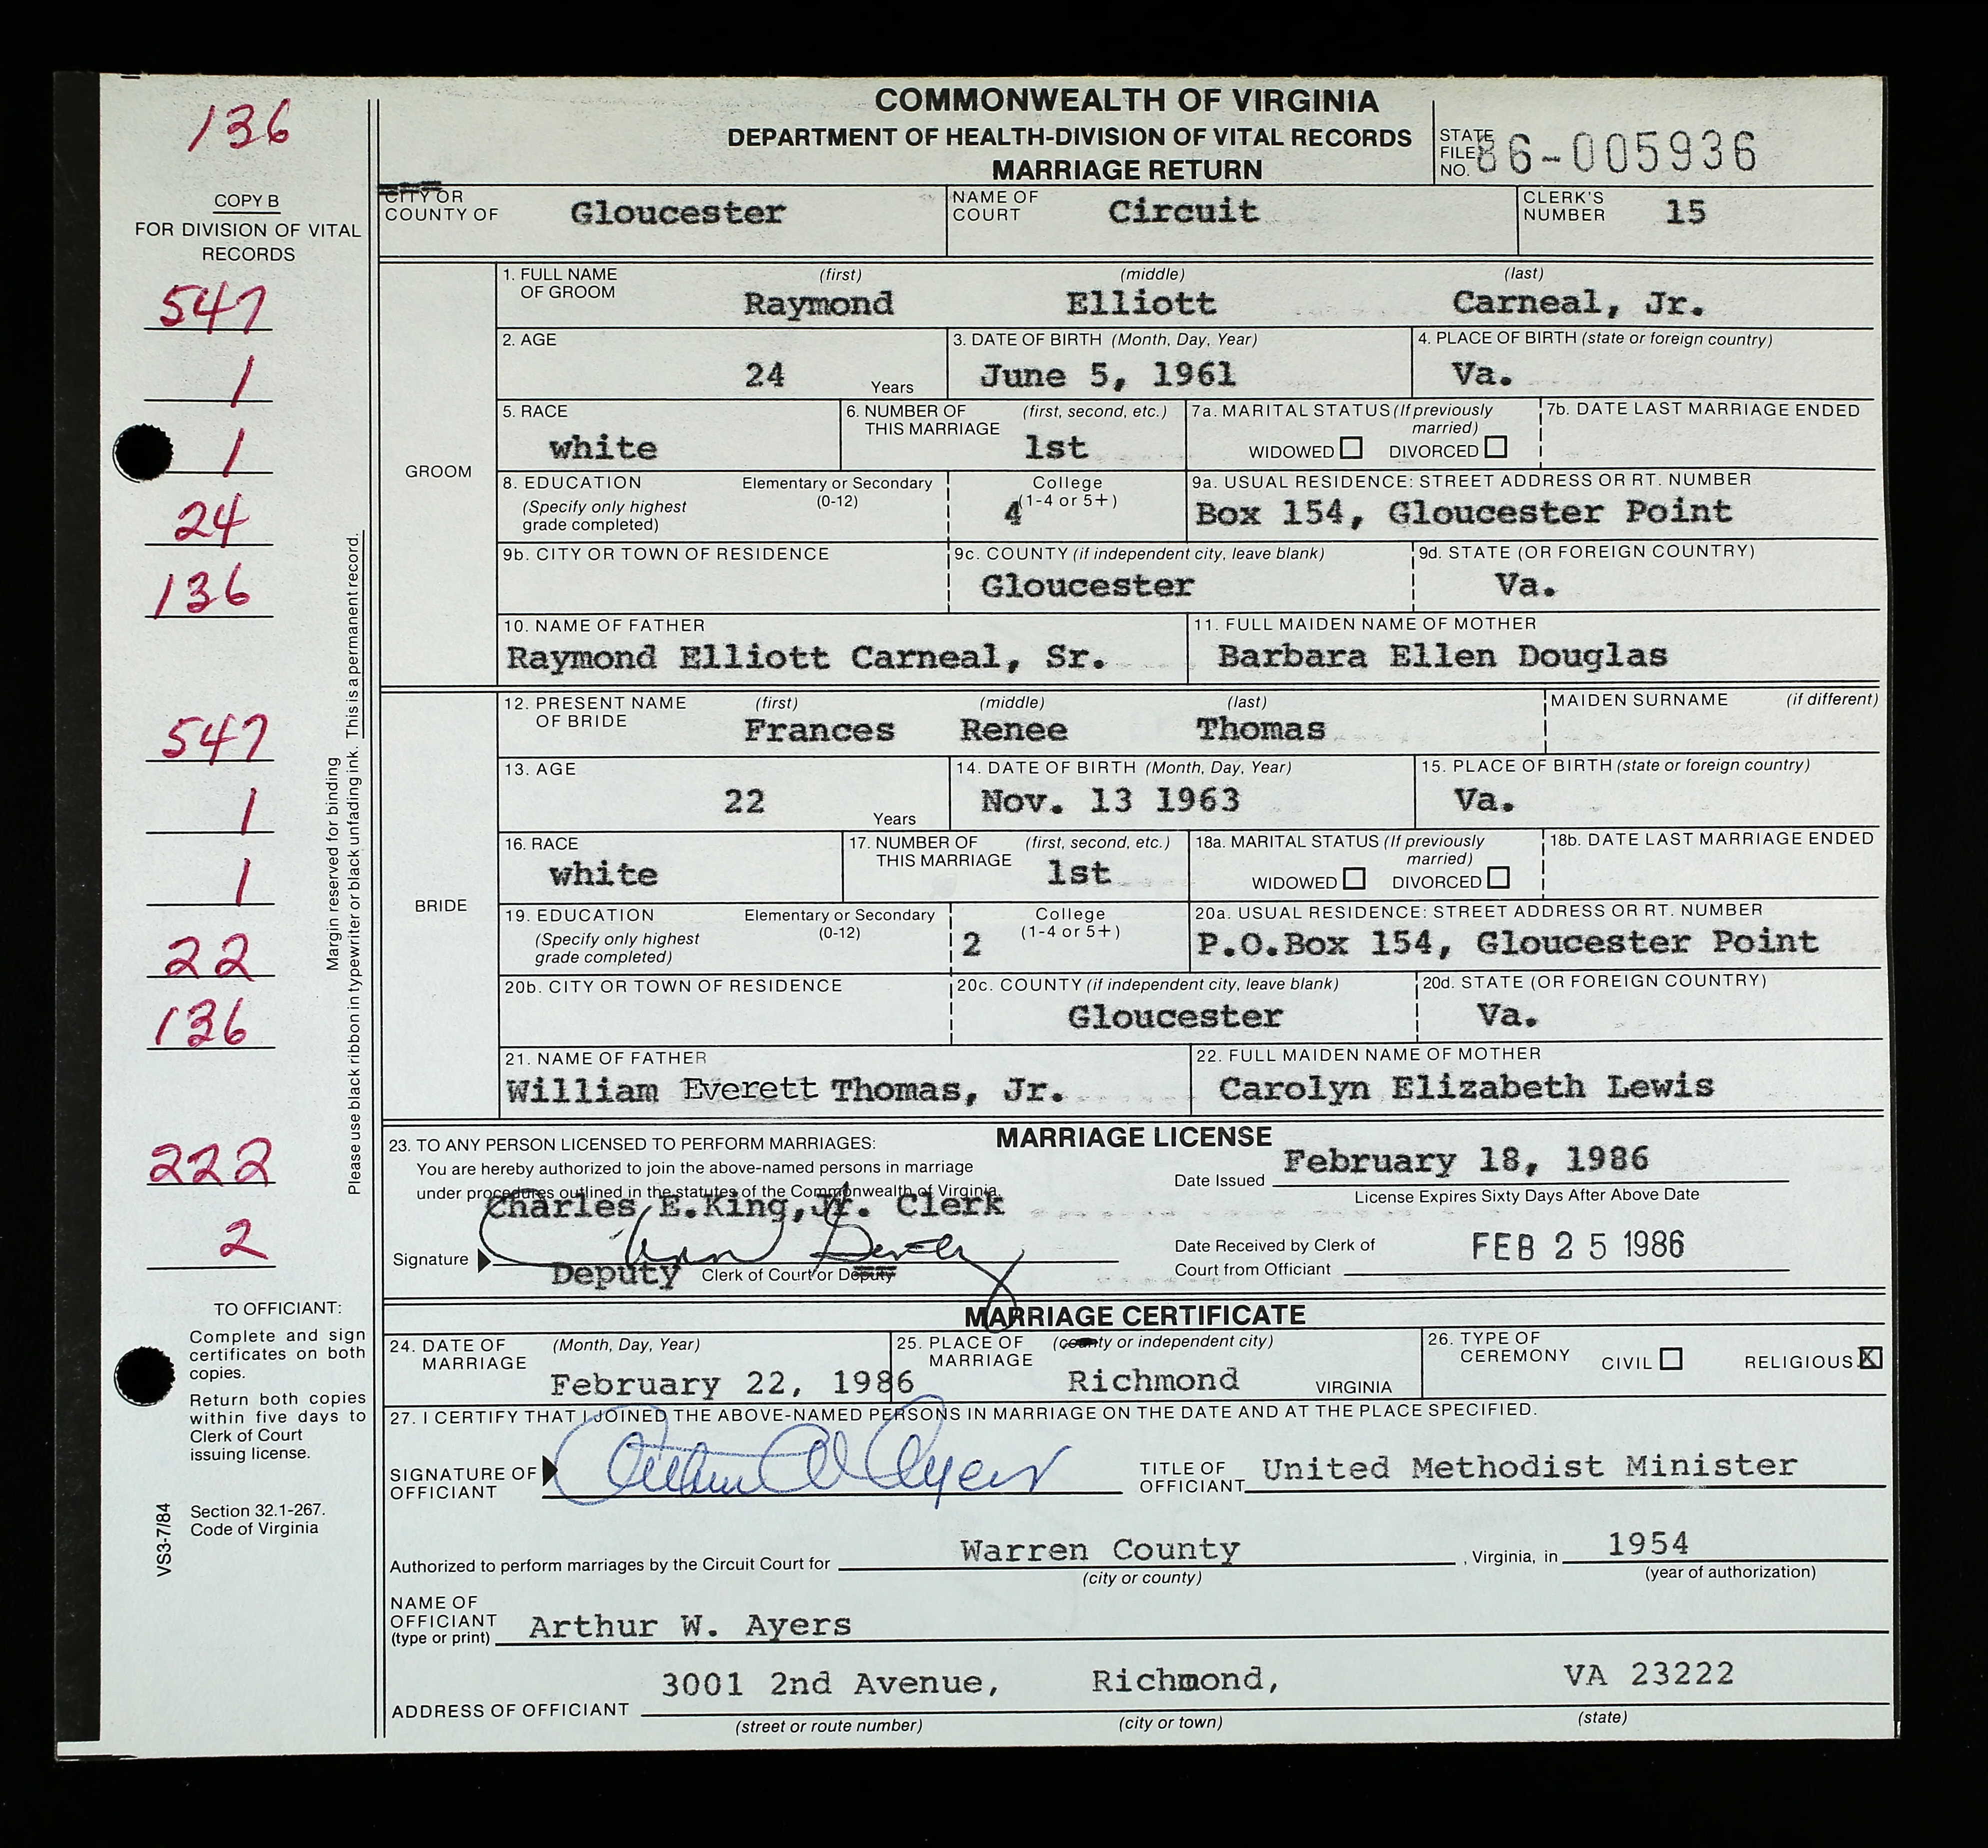 COMMONWEALTH OF VIRGINIA
DEPARTMENT OF HEALTH-DIVISION OF VITAL RECORDS
MARRIAGE RETURN
STATE FILE NO. 86-005936
136
COPY B
FOR DIVISION OF VITAL
RECORDS
547
1
1
24
136
547
1
1
22
136
222
2
Margin reserved for binding
Please use black ribbon in typewriter or black unfading ink. This is a permanent record.
TO OFFICIANT:
Complete and sign
certificates on both
copies.
Return both copies
within five days to
Clerk of Court
issuing license.
Section 32.1-267.
Code of Virginia
VS3-7/84
CITY OR COUNTY OF Gloucester NAME OF COURT Circuit CLERK'S NUMBER 15
GROOM
1. FULL NAME OF GROOM (first) (middle) (last)
Raymond Elliott Carneal, Jr.
2. AGE 3. DATE OF BIRTH (Month, Day, Year) 4. PLACE OF BIRTH (state or foreign country)
24 Years June 5, 1961 Va.
5. RACE 6. NUMBER OF THIS MARRIAGE (first, second, etc.) 7a. MARITAL STATUS (If previously married) 7b. DATE LAST MARRIAGE ENDED
white 1st WIDOWED DIVORCED
8. EDUCATION (Specify only highest grade completed) Elementary or Secondary (0-12) College (1-4 or 5+) 9a. USUAL RESIDENCE: STREET ADDRESS OR RT. NUMBER
4 Box 154, Gloucester Point
9b. CITY OR TOWN OF RESIDENCE 9c. COUNTY (if independent city, leave blank) 9d. STATE (OR FOREIGN COUNTRY)
Gloucester Va.
10. NAME OF FATHER 11. FULL MAIDEN NAME OF MOTHER
Raymond Elliott Carneal, Sr. Barbara Ellen Douglas
BRIDE
12. PRESENT NAME OF BRIDE (first) (middle) (last) MAIDEN SURNAME (if different)
Frances Renee Thomas
13. AGE 14. DATE OF BIRTH (Month, Day, Year) 15. PLACE OF BIRTH (state or foreign country)
22 Years Nov. 13 1963 Va.
16. RACE 17. NUMBER OF THIS MARRIAGE (first, second, etc.) 18a. MARITAL STATUS (If previously married) 18b. DATE LAST MARRIAGE ENDED
white 1st WIDOWED DIVORCED
19. EDUCATION (Specify only highest grade completed) Elementary or Secondary (0-12) College (1-4 or 5+) 20a. USUAL RESIDENCE: STREET ADDRESS OR RT. NUMBER
2 P.O.Box 154, Gloucester Point
20b. CITY OR TOWN OF RESIDENCE 20c. COUNTY (if independent city, leave blank) 20d. STATE (OR FOREIGN COUNTRY)
Gloucester Va.
21. NAME OF FATHER 22. FULL MAIDEN NAME OF MOTHER
William Everett Thomas, Jr. Carolyn Elizabeth Lewis
MARRIAGE LICENSE
23. TO ANY PERSON LICENSED TO PERFORM MARRIAGES:
You are hereby authorized to join the above-named persons in marriage
under procedures outlined in the statutes of the Commonwealth of Virginia.
Charles E.King,Jr. Clerk
Signature
Deputy Clerk of Court or Deputy
Date Issued February 18, 1986
License Expires Sixty Days After Above Date
Date Received by Clerk of Court from Officiant FEB 25 1986
MARRIAGE CERTIFICATE
24. DATE OF MARRIAGE (Month, Day, Year) 25. PLACE OF MARRIAGE (county or independent city) 26. TYPE OF CEREMONY CIVIL RELIGIOUS X
February 22, 1986 Richmond VIRGINIA
27. I CERTIFY THAT I JOINED THE ABOVE-NAMED PERSONS IN MARRIAGE ON THE DATE AND AT THE PLACE SPECIFIED.
SIGNATURE OF OFFICIANT Arthur W Ayers TITLE OF OFFICIANT United Methodist Minister
Authorized to perform marriages by the Circuit Court for Warren County , Virginia, in 1954
(city or county) (year of authorization)
NAME OF OFFICIANT (type or print) Arthur W. Ayers
ADDRESS OF OFFICIANT 3001 2nd Avenue, Richmond, VA 23222
(street or route number) (city or town) (state)